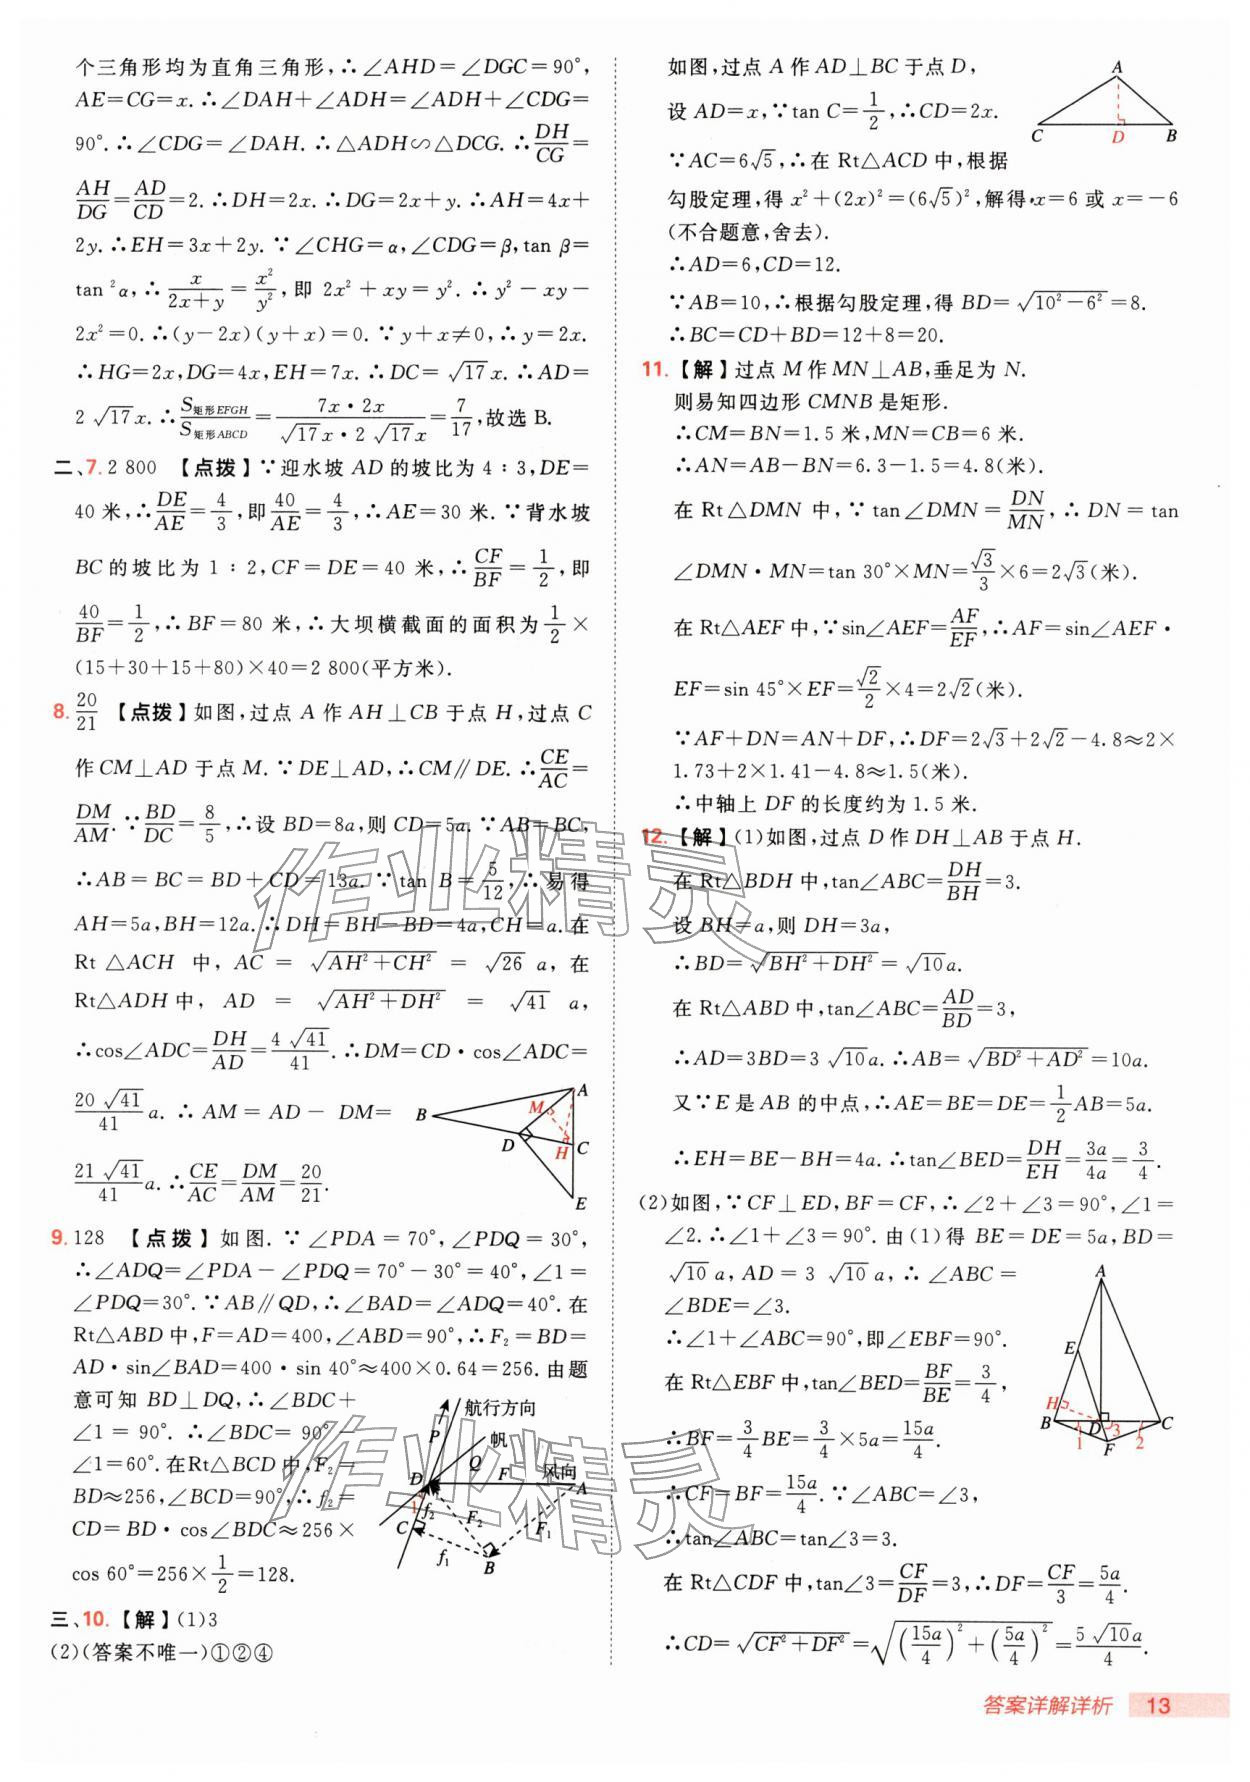 个三角形均为直角三角形,∴∠AHD=∠DGC=90°,
AE=CG=x.∴∠DAH+∠ADH=∠ADH+∠CDG=
90°.∴∠CDG=∠DAH.∴△ADH∽△DCG.∴DH/CG=
AH/DG=AD/CD=2.∴DH=2x.∴DG=2x+y.∴AH=4x+
2y.∴EH=3x+2y.∵∠CHG=α,∠CDG=β,tan β=
tan²α,∴x/(2x+y)=x²/y²,即 2x²+xy=y².∴y²-xy-
2x²=0.∴(y-2x)(y+x)=0.∵y+x≠0,∴y=2x.
∴HG=2x,DG=4x,EH=7x.∴DC=√17x.∴AD=
2√17x.∴S矩形EFGH/S矩形ABCD=(7x·2x)/(√17x·2√17x)=7/17,故选 B.
二、7.2 800 【点拨】∵迎水坡 AD 的坡比为 4∶3,DE=
40 米,∴DE/AE=4/3,即40/AE=4/3,∴AE=30 米.∵背水坡
BC 的坡比为 1∶2,CF=DE=40 米,∴CF/BF=1/2,即
40/BF=1/2,∴BF=80 米,∴大坝横截面的面积为1/2×
(15+30+15+80)×40=2 800(平方米).
8.20/21 【点拨】如图,过点 A 作 AH⊥CB 于点 H,过点 C
作 CM⊥AD 于点 M.∵DE⊥AD,∴CM∥DE.∴CE/AC=
DM/AM.∵BD/DC=8/5,∴设 BD=8a,则 CD=5a.∵AB=BC,
∴AB=BC=BD+CD=13a.∵tan B=5/12,∴易得
AH=5a,BH=12a.∴DH=BH-BD=4a,CH=a.在
Rt△ACH 中,AC=√(AH²+CH²)=√26 a,在
Rt△ADH 中,AD=√(AH²+DH²)=√41 a,
∴cos∠ADC=DH/AD=4√41/41.∴DM=CD·cos∠ADC=
20√41/41 a.∴AM=AD-DM=
21√41/41 a.∴CE/AC=DM/AM=20/21.
A
B
M
D
H
C
E
9.128 【点拨】如图.∵∠PDA=70°,∠PDQ=30°,
∴∠ADQ=∠PDA-∠PDQ=70°-30°=40°,∠1=
∠PDQ=30°.∵AB∥QD,∴∠BAD=∠ADQ=40°.在
Rt△ABD 中,F=AD=400,∠ABD=90°,∴F₂=BD=
AD·sin∠BAD=400·sin 40°≈400×0.64=256.由题
意可知 BD⊥DQ,∴∠BDC+
∠1=90°.∴∠BDC=90°-
∠1=60°.在Rt△BCD 中,F₂=
BD≈256,∠BCD=90°,∴f₂=
CD=BD·cos∠BDC≈256×
cos 60°=256×1/2=128.
航行方向
P
帆
Q
风向
D
F
A
1
f₂
F₂
F₁
C
f₁
B
三、10.【解】(1)3
(2)(答案不唯一)①②④
如图,过点 A 作 AD⊥BC 于点 D,
设 AD=x,∵tan C=1/2,∴CD=2x.
∵AC=6√5,∴在 Rt△ACD 中,根据
勾股定理,得 x²+(2x)²=(6√5)²,解得x=6 或 x=-6
(不合题意,舍去).
∴AD=6,CD=12.
∵AB=10,∴根据勾股定理,得 BD=√(10²-6²)=8.
∴BC=CD+BD=12+8=20.
A
C
D
B
11.【解】过点 M 作 MN⊥AB,垂足为 N.
则易知四边形 CMNB 是矩形.
∴CM=BN=1.5 米,MN=CB=6 米.
∴AN=AB-BN=6.3-1.5=4.8(米).
在 Rt△DMN 中,∵tan∠DMN=DN/MN,∴DN=tan
∠DMN·MN=tan 30°×MN=√3/3×6=2√3(米).
在 Rt△AEF 中,∵sin∠AEF=AF/EF,∴AF=sin∠AEF·
EF=sin 45°×EF=√2/2×4=2√2(米).
∵AF+DN=AN+DF,∴DF=2√3+2√2-4.8≈2×
1.73+2×1.41-4.8≈1.5(米).
∴中轴上 DF 的长度约为 1.5 米.
12.【解】(1)如图,过点 D 作 DH⊥AB 于点 H.
在 Rt△BDH 中,tan∠ABC=DH/BH=3.
设 BH=a,则 DH=3a,
∴BD=√(BH²+DH²)=√10a.
在 Rt△ABD 中,tan∠ABC=AD/BD=3,
∴AD=3BD=3√10a.∴AB=√(BD²+AD²)=10a.
又∵E 是 AB 的中点,∴AE=BE=DE=1/2AB=5a.
∴EH=BE-BH=4a.∴tan∠BED=DH/EH=3a/4a=3/4.
(2)如图,∵CF⊥ED,BF=CF,∴∠2+∠3=90°,∠1=
∠2.∴∠1+∠3=90°.由(1)得 BE=DE=5a,BD=
√10 a,AD=3√10 a,∴∠ABC=
∠BDE=∠3.
∴∠1+∠ABC=90°,即∠EBF=90°.
在 Rt△EBF 中,tan∠BED=BF/BE=3/4,
∴BF=3/4BE=3/4×5a=15a/4.
∴CF=BF=15a/4.∵∠ABC=∠3,
∴tan∠ABC=tan∠3=3.
在 Rt△CDF 中,tan∠3=CF/DF=3,∴DF=CF/3=5a/4.
∴CD=√(CF²+DF²)=√((15a/4)²+(5a/4)²)=5√10a/4.
A
E
H
B
D
3
C
1
F
2
作业精灵
作业精灵
答案详解详析 13